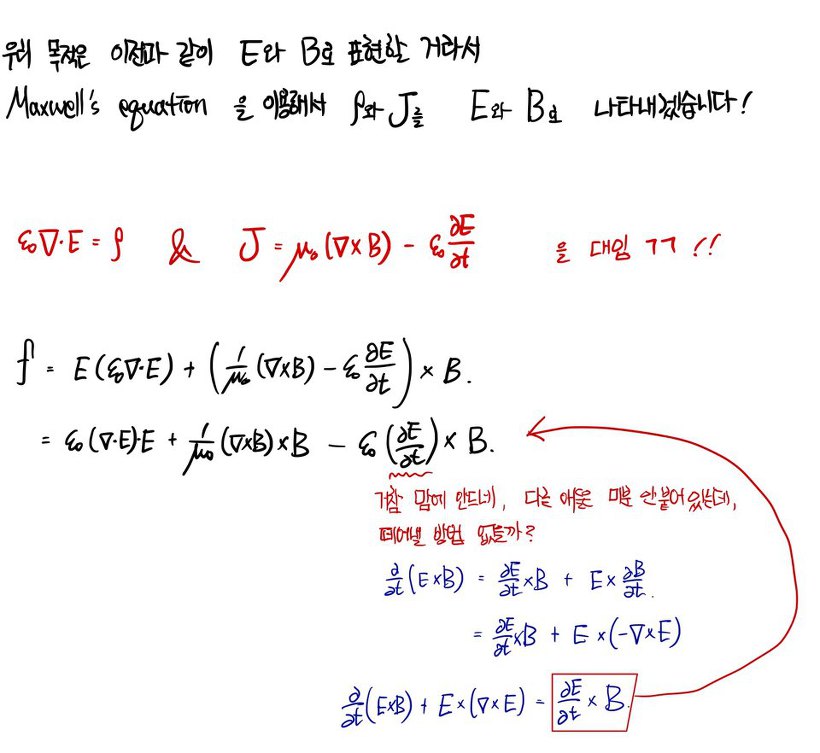 우리 목적은 이전과 같이 E와 B로 표현한 거라서
Maxwell's equation 을 이용해서 ρ와 J를 E와 B로 나타내겠습니다!
ε₀∇·E = ρ & J = μ₀(∇×B) - ε₀ ∂E/∂t 을 대입 ㄱㄱ !!
f = E(ε₀∇·E) + (1/μ₀ (∇×B) - ε₀ ∂E/∂t) × B.
= ε₀(∇·E)·E + 1/μ₀ (∇×B)×B - ε₀(∂E/∂t) × B.
거참 맘에 안드네, 다른 애들은 미분 안붙어있는데,
떼어낼 방법 없을까?
∂/∂t (E×B) = ∂E/∂t ×B + E× ∂B/∂t.
= ∂E/∂t ×B + E ×(-∇×E)
∂/∂t (E×B) + E×(∇×E) = ∂E/∂t × B.